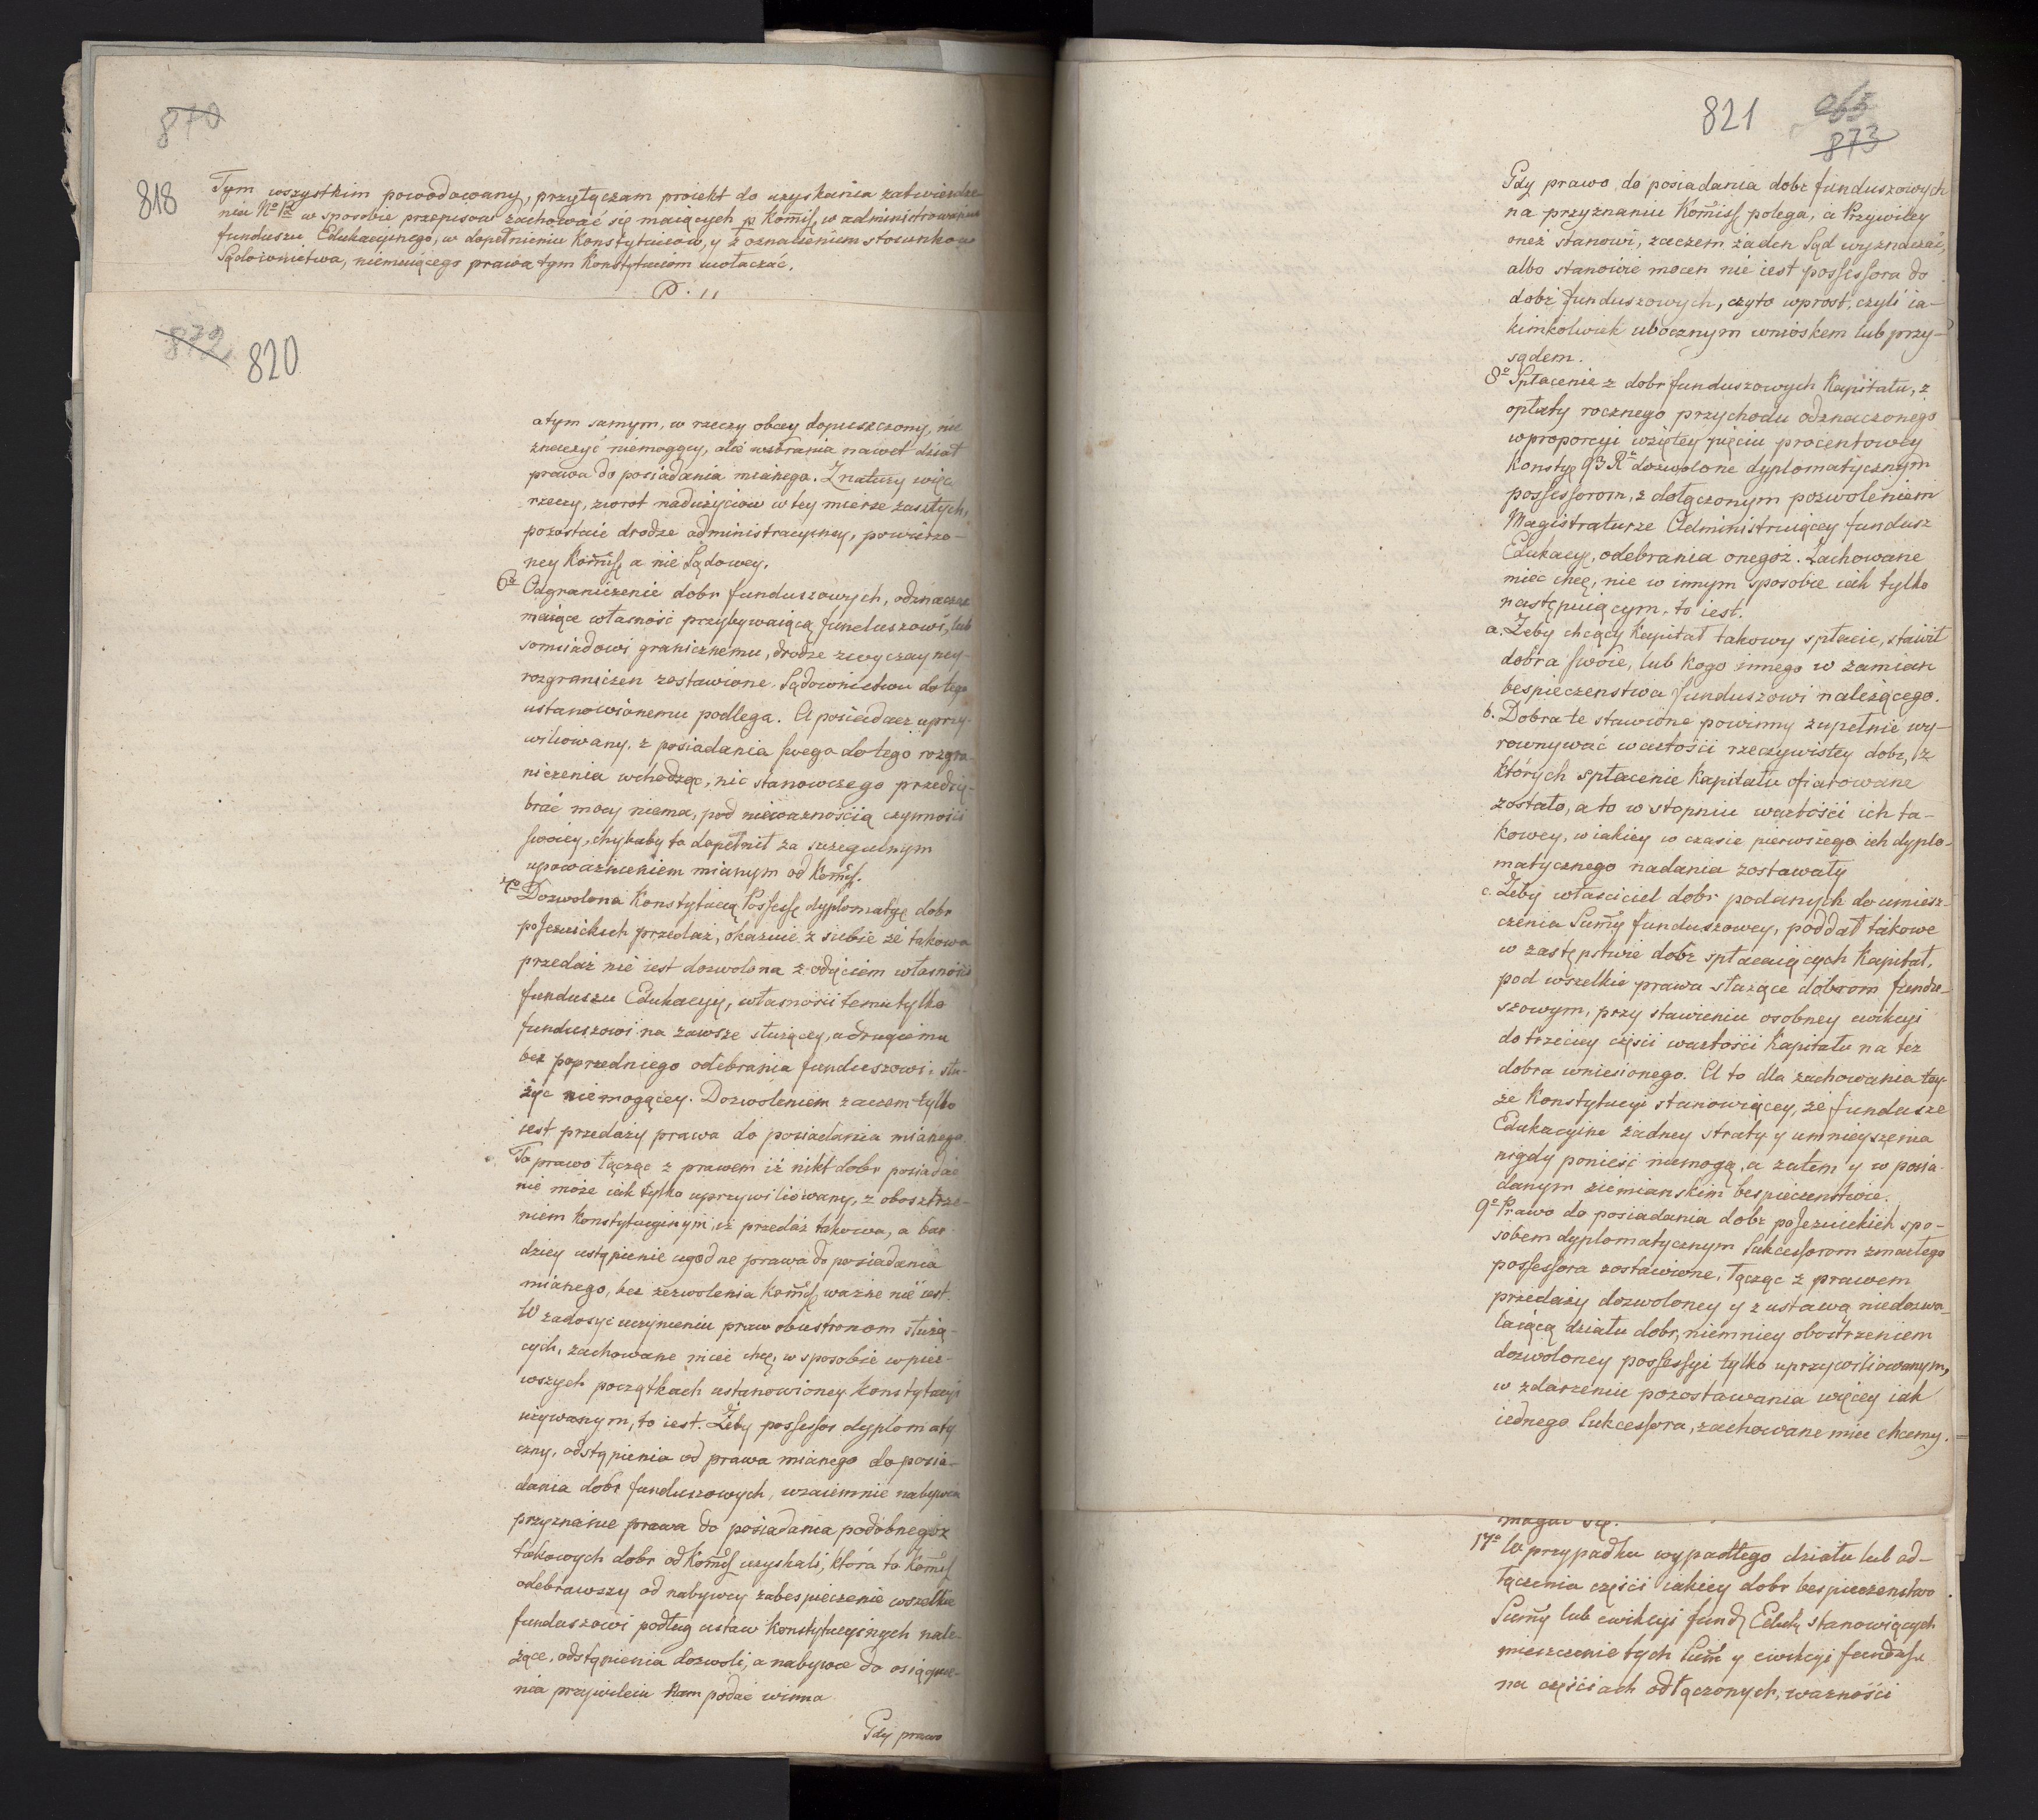 870
818
Tym wszystkim powodowany, przyłączam proiekt do uzyskania zatwierdze-
nia No 12 w sposobie przepisow zachować się maiących p Komiss w administrowaniu
funduszu Edukacyinego, w dopełnieniu Konstytuciow, y z oznaczeniem stosunkow
Sądownictwa, niemaiącego prawa tym Konstytuciom uwłaczać.
872 820
a tym samym, w rzeczy obcey dopuszczony, nic
znaczyć niemogący, ale wzbrania nawet dział
prawa do posiadania mianego. Z natury więc
rzeczy, zwrot nadużyciow w tey mierze zaszłych,
pozostaie drodze administracyiney, powierzo-
ney Komiss a nie Sądowey.
6o Odgraniczenie dobr funduszowych, odznaczać
maiące własność przybywaiącą funduszowi, lub
somsiadowi granicznemu, drodze zwyczayney
rozgraniczen zostawione, Sądownictwu do tego
ustanowionemu podlega. A posiadacz uprzy-
wiliowany, z posiadania swego do tego rozgra-
niczenia wchodząc, nic stanowczego przedsię-
brać mocy niema, pod nieważnością czynności
swoiey, chybaby to dopełnił za szczegulnym
upoważnieniem mianym od Komiss.
7o Dozwolona Konstytucią Possessę dyplomatyę dobr
poJezuickich przedaż, okazuie z siebie że takowa
przedaż nie iest dozwolona z odięciem własności
funduszu Edukacyię, własności temu tylko
funduszowi na zawsze służącey, a drugiemu
bez poprzedniego odebrania funduszowi, słu-
życ niemogącey. Dozwoleniem zaczem tylko
iest przedaży prawa do posiadania mianego.
To prawo łącząc z prawem iż nikt dobr posiadać
nie może iak tylko uprzywiliowany, z obosztrze-
niem Konstytucyinym, iż przedaż takowa, a bar-
dziey ustąpienie ugodne prawa do posiadania
mianego, bez zezwolenia Komiss ważne nie iest.
W zadosyc uczynieniu praw obustronom służą-
cych, zachowane mieć chcę, w sposobie w pier-
wszych początkach ustanowioney Konstytucyi
używanym, to iest. Żeby possessor dyplomaty-
czny, odstąpienia od prawa mianego do posia-
dania dobr funduszowych, wzaiemnie nabywca
przyznanie prawa do posiadania podobnegoż
takowych dobr od Komiss uzyskali, która to Komiss
odebrawszy od nabywcy zabespieczenie wszelkie
funduszowi podług ustaw Konstytucyinych nale-
żące, odstąpienia dozwoli, a nabywce do osiągnie-
nia przywileiu Nam podać winna.
Gdy prawo
821 865
873
Gdy prawo do posiadania dobr funduszowych
na przyznaniu Komiss polega, a Przywiley
oneż stanowi, zaczem żaden Sąd wyznaczać,
albo stanowić mocen nie iest possessora do
dobr funduszowych, czyto wprost, czyli ia-
kimkolwiek ubocznym wnioskem lub przy-
sądem.
8o Spłacenie z dobr funduszowych Kapitału, z
opłaty rocznego przychodu odznaczonego
w proporcyi wziętey pięciu procentowey
Konstyę 93 Ru dozwolone dyplomatycznym
possessorom, z dołączonym pozwoleniem
Magistraturze Administruiącey fundusz
Edukacyę, odebrania onegoż. Zachowane
miec chcę, nie w innym sposobie iak tylko
następuiącym, to iest.
a. Żeby chcący Kapitał takowy spłacic, stawił
dobra swoie, lub kogo innego w zamian
bespieczenstwa funduszowi należącego.
b. Dobra te stawione powinny zupełnie wy-
rownywać wartości rzeczywistey dobr, z
których spłacenie Kapitału ofiarowane
zostało, a to w stopniu wartości ich ta-
kowey, w iakiey w czasie pierwszego ich dyplo-
matycznego nadania zostawały
c. Żeby właściciel dobr podanych do umiesz-
czenia Sumy funduszowey, poddał takowe
w zastępstwie dobr spłacaiących Kapitał,
pod wszelkie prawa służące dobrom fundu-
szowym, przy stawieniu osobney ewikcyi
do trzeciey części wartości Kapitału na też
dobra wniesionego. A to dla zachowania tey-
że Konstytucyi stanowiącey, że fundusze
Edukacyine żadney straty y umnieyszenia
nigdy ponieść niemogą, a zatem y w posia-
danym ziemianskim bespieczenstwie.
9o Prawo do posiadania dobr poJezuickich spo-
sobem dyplomatycznym Sukcessorom zmarłego
possessora zostawione, łącząc z prawem
przedaży dozwoloney y z ustawą niedozwa-
laiącą działu dobr, niemniey obostrzeniem
dozwoloney possessyi tylko uprzywiliowanym,
w zdarzeniu pozostawania więcey iak
iednego Sukcessora, zachowane miec chcemy.
magać się.
17o W przypadku wypadłego działu lub od-
łączenia części iakiey dobr bespieczenstwo
Sumy lub ewikcyi fund Eduk stanowiących
mieszczenie tych Sum y ewikcyi fundusz
na częściach odłączonych, ważności